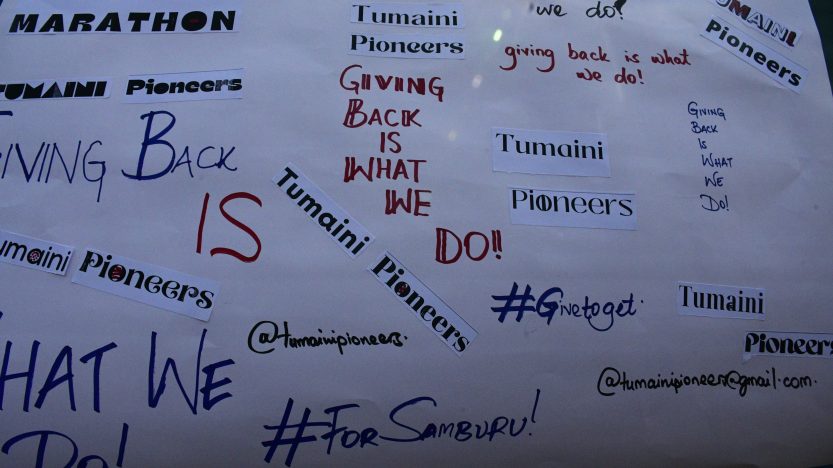 MARATHON
TUMAINI Pioneers
GIVING BACK
IS
Tumaini
Pioneers
GIVING
BACK
IS
WHAT
WE
DO!!
we do!
giving back is what
we do!
TUMAINI
Pioneers
Tumaini
Pioneers
GIVING
BACK
IS
WHAT
WE
DO!
Tumaini
Pioneers
umaini
Pioneers
#Givetoget.
Tumaini
Pioneers
@tumainipioneers.
@tumainipioneers@gmail.com.
HAT WE
DO!
#FOR SAMBURU!